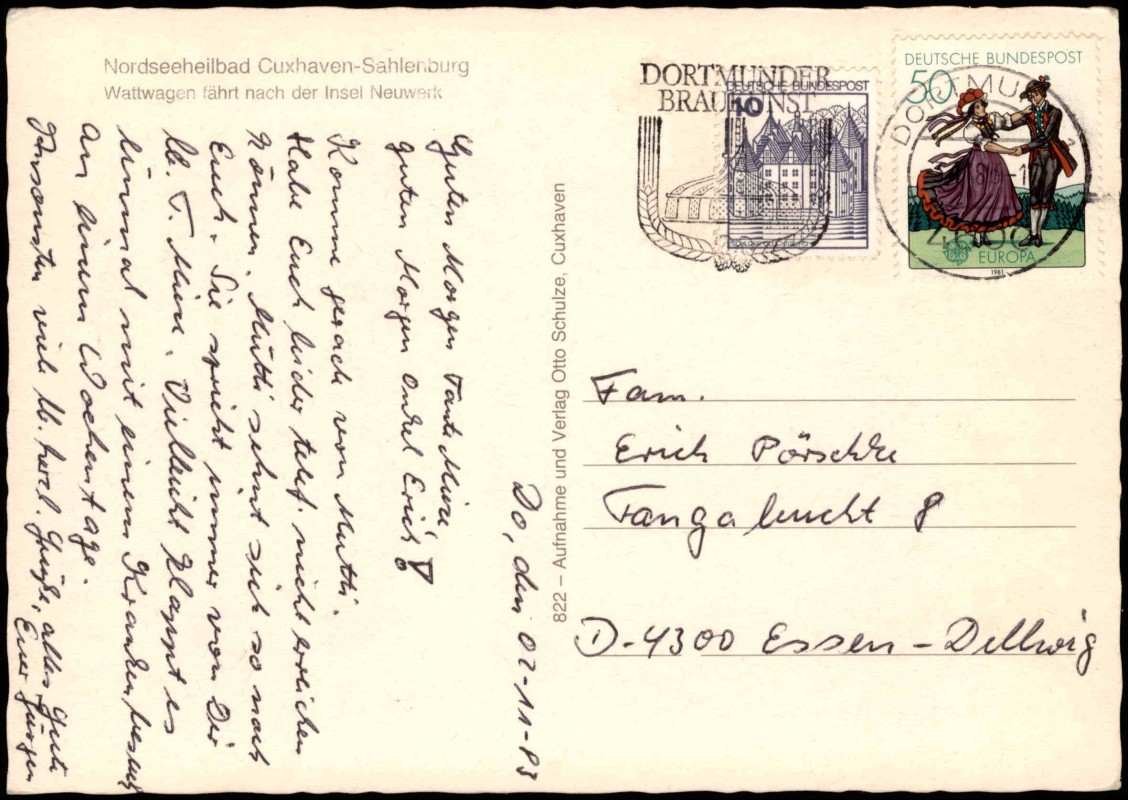 Nordseeheilbad Cuxhaven-Sahlenburg
Wattwagen fährt nach der Insel Neuwerk
DORTMUNDER
BRAUKUNST
DEUTSCHE BUNDESPOST
10
DEUTSCHE BUNDESPOST
50
EUROPA
1981
DORTMUND
822 – Aufnahme und Verlag Otto Schulze, Cuxhaven
Do, den 02-11-83
Guten Morgen Tante Miere
guten Morgen Onkel Erich!
Komme gerade von Mutti.
Habe Euch leider telef. nicht erreichen
können. Mutti sehnt sich so nach
Euch. Sie spricht immer von Dir
lb. T. Miere. Vielleicht klappt es
einmal mit einem Krankenbesuch
an einem Wochentage.
Ansonsten viele lb. herzl. Grüße, alles Gute
Euer Jürgen
Fam.
Erich Pörschke
Tangabucht 8
D-4300 Essen-Dellwig